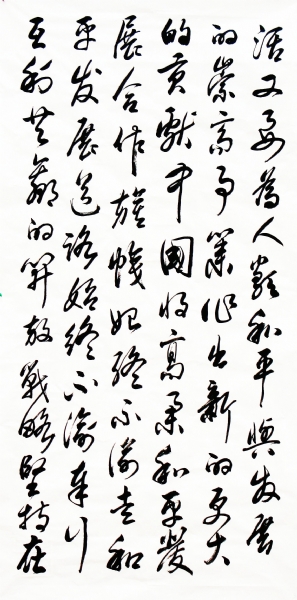 活又要為人類和平與发展
的崇高事業作出新的更大
的貢獻中國将高舉和平發
展合作旗幟始终不渝走和
平发展道路始终不渝奉行
互利共贏的開放戰略堅持在